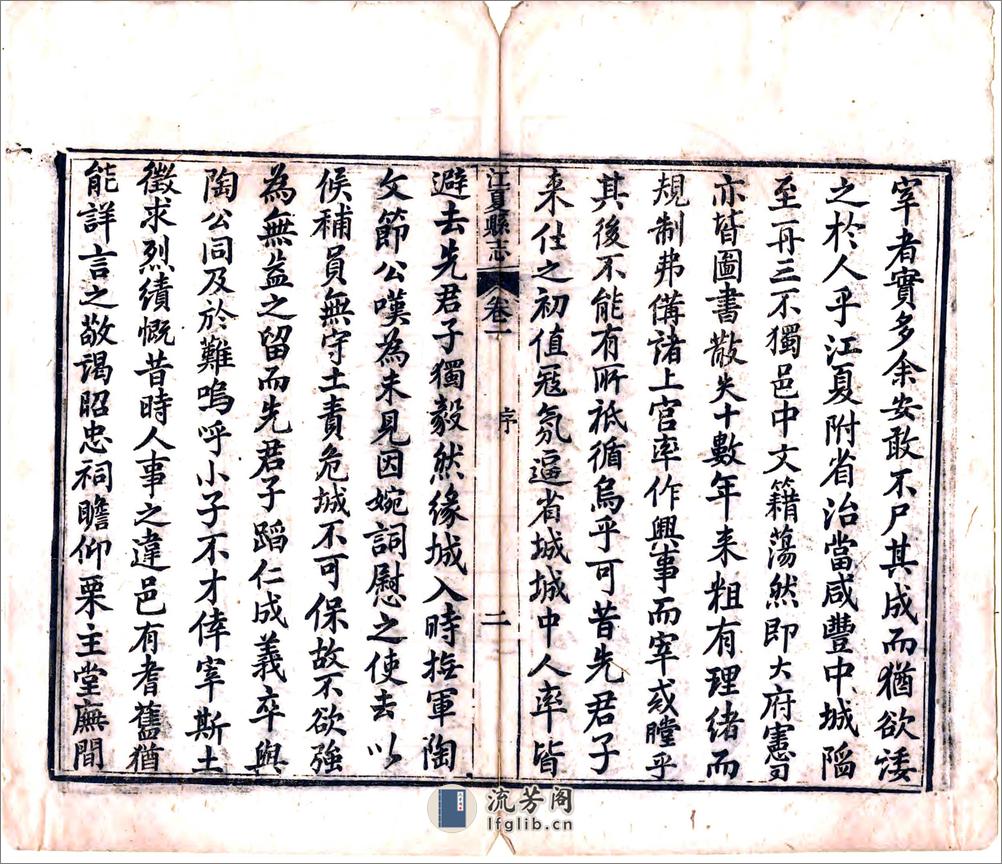 宰者實多余安敢不尸其成而猶欲諉
之於人乎江夏附省治當咸豐中城陷
至再三不獨邑中文籍蕩然即大府憲司
亦皆圖書散失十數年来粗有理緒而
規制弗備諸上官率作興事而宰或瞠乎
其後不能有所祗循烏乎可昔先君子
来仕之初值冦氛逼省城城中人率皆
江夏縣志
卷一
序
二
避去先君子獨毅然緣城入時撫軍陶
文節公嘆為未見因婉詞慰之使去以
候補員無守土責危城不可保故不欲強
為無益之留而先君子蹈仁成義卒與
陶公同及於難嗚呼小子不才倖宰斯土
徵求烈績慨昔時人事之違邑有耆舊猶
能詳言之敬謁昭忠祠瞻仰栗主堂廡間
流芳阁
lfglib.cn